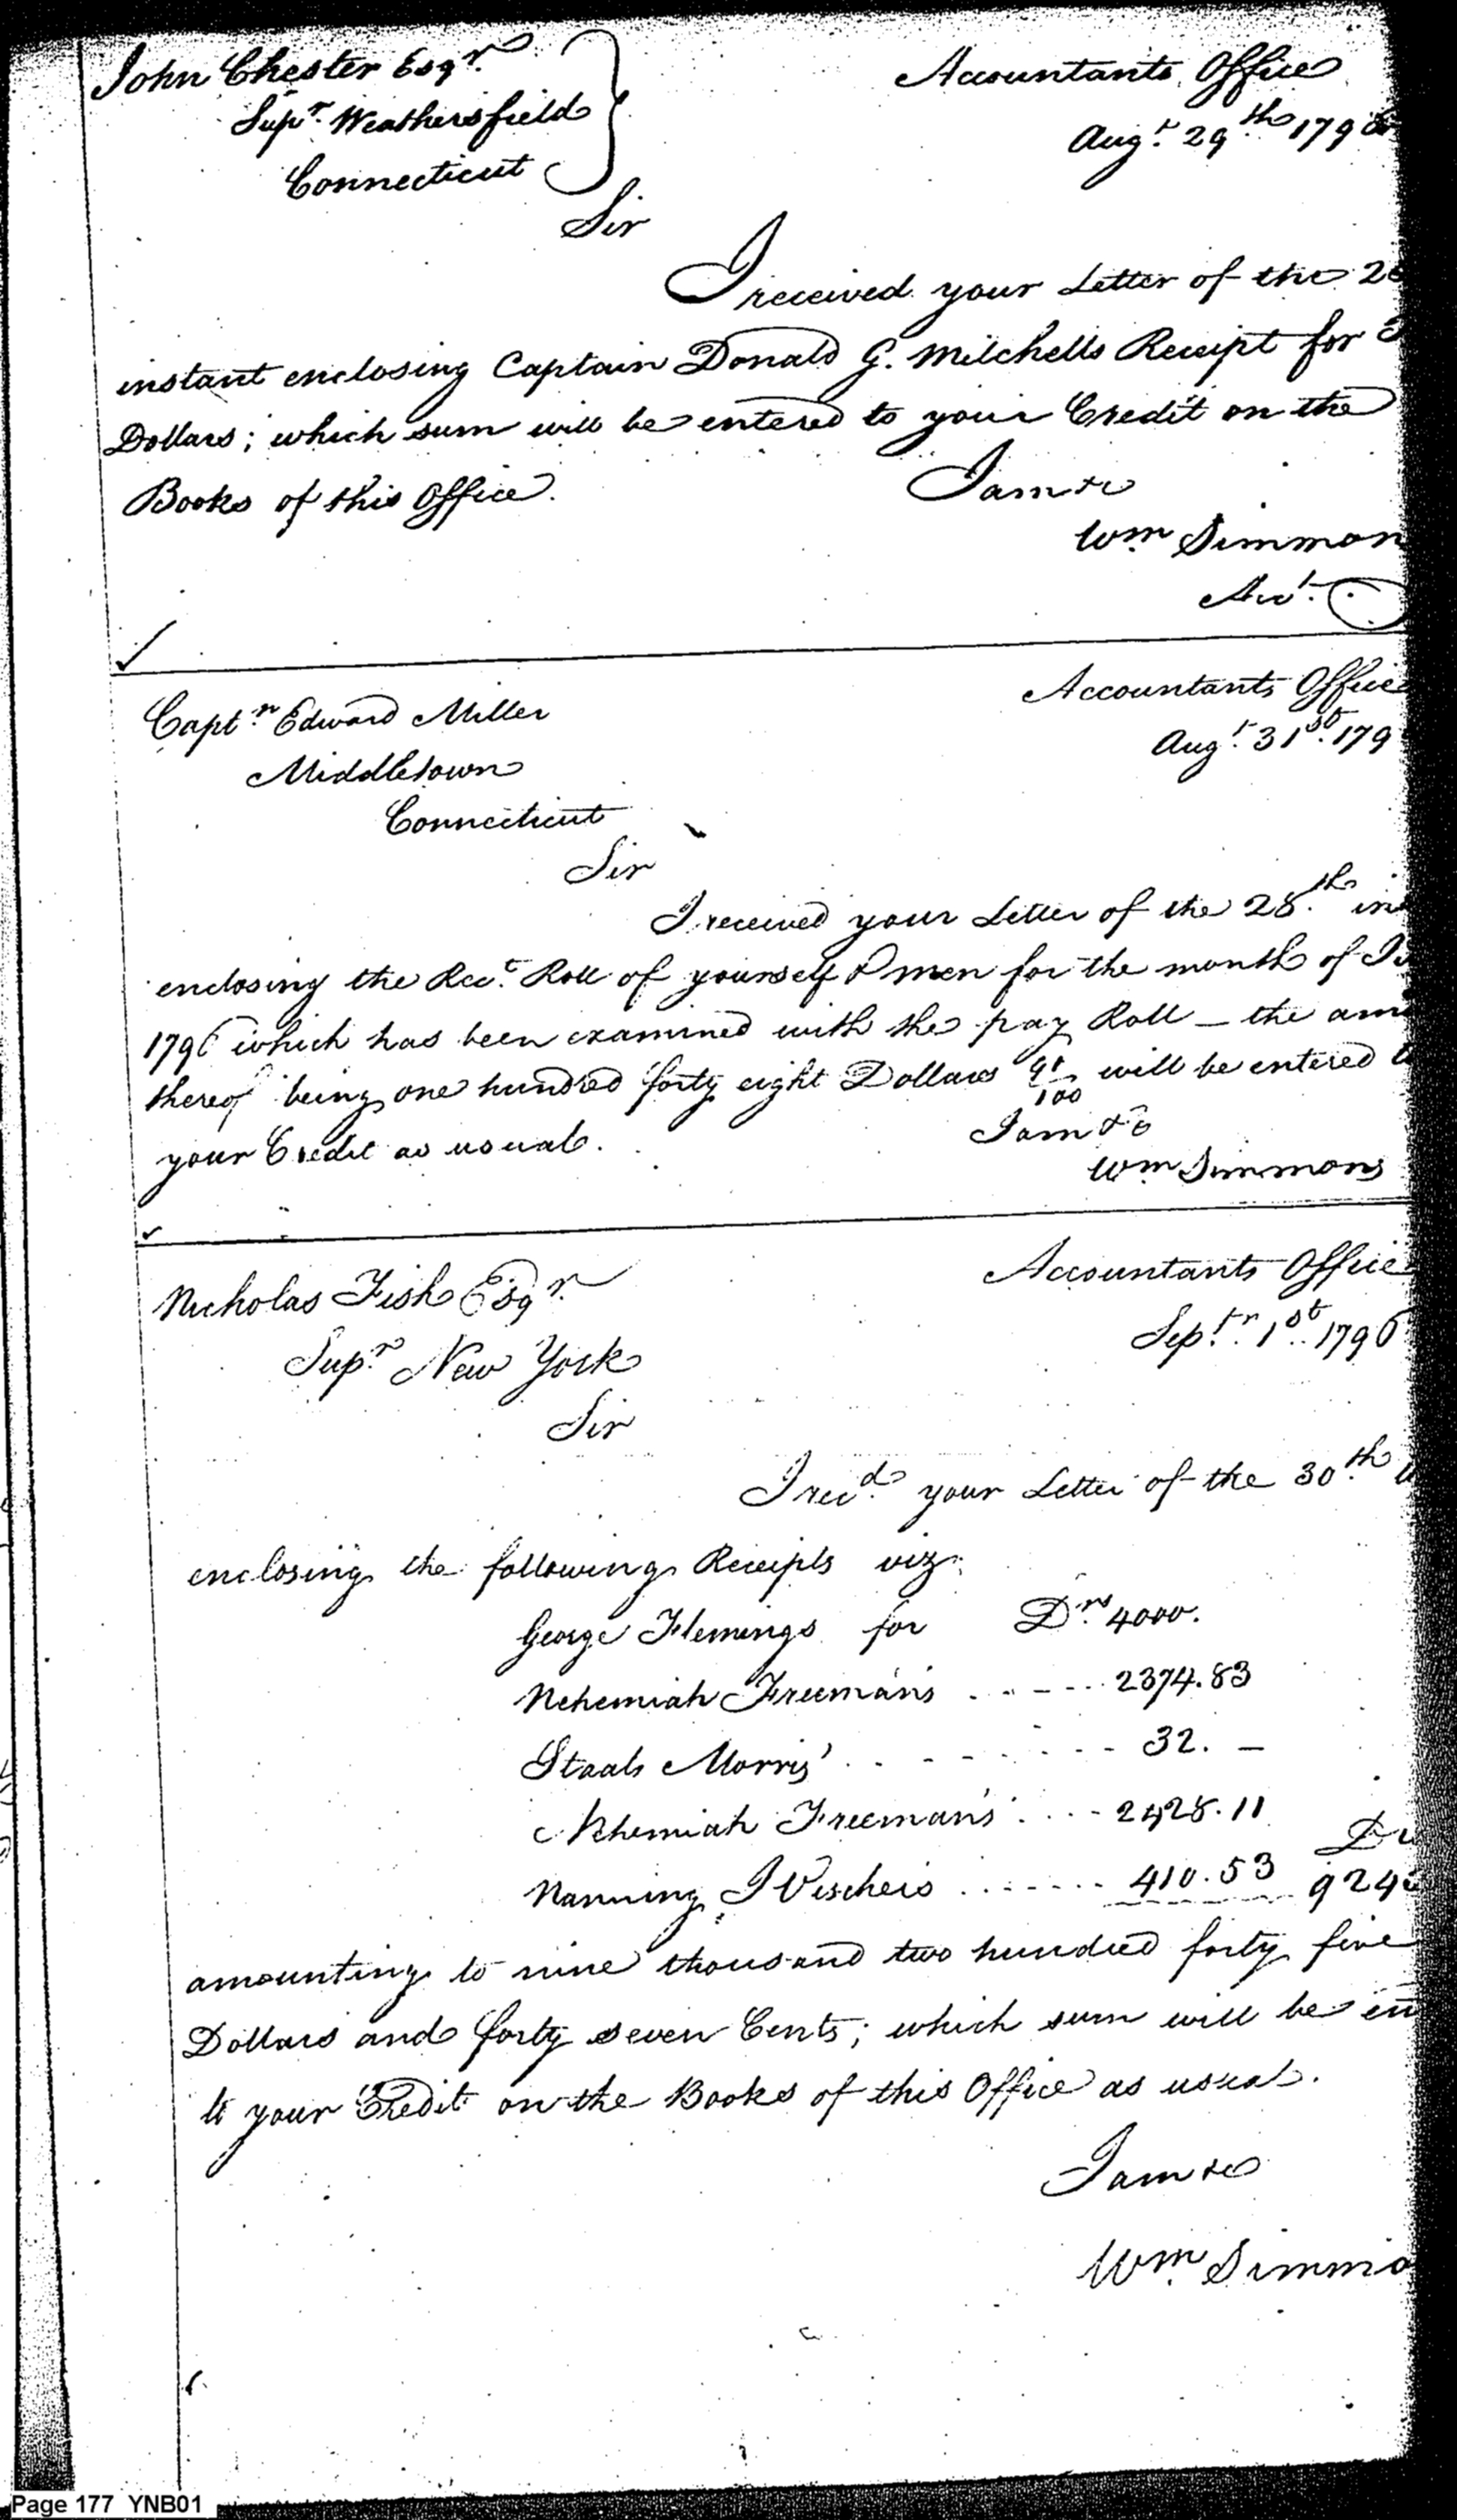 John Chester Esqr.
Supr. Weathersfield
Connecticut
Accountants Office
Augt. 29th 1796
Sir
I received your Letter of the
instant enclosing Captain Donald G. Mitchells Receipt for
Dollars; which sum will be entered to your Credit on the
Books of this Office.
I am &c
Wm Simmon
Acct.
Captn. Edward Miller
Middletown
Connecticut
Accountants Office
Augt. 31st. 179
Sir
I received your Letter of the 28th. in
enclosing the Rect. Roll of yourself & men for the month of
1796 which has been examined with the pay Roll — the am
thereof being one hundred forty eight Dollars /100 will be entered
your Credit as usual.
I am &c
Wm Simmons
Nicholas Fish Esqr.
Supr. New York
Accountants Office
Septr. 1st. 1796
Sir
I recd. your Letter of the 30th.
enclosing the following Receipts viz.
George Flemings for Drs. 4000.
Nehemiah Freeman's . . - - . . 2374.83
Staats Morris' . . - - - . . - - 32. —
Nehemiah Freeman's . . . - 2428.11
Nanning J Vischers . . - - - . . 410.53 924
amounting to nine thousand two hundred forty five
Dollars and forty seven Cents; which sum will be en
to your Credit on the Books of this Office as usual.
I am &c
Wm. Simmo
Page 177 YNB01